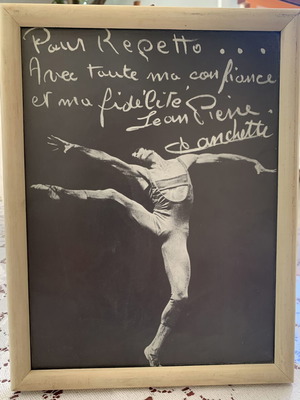 Pour Repetto ...
Avec toute ma confiance
et ma fidélité
Jean Pierre
Franchetti